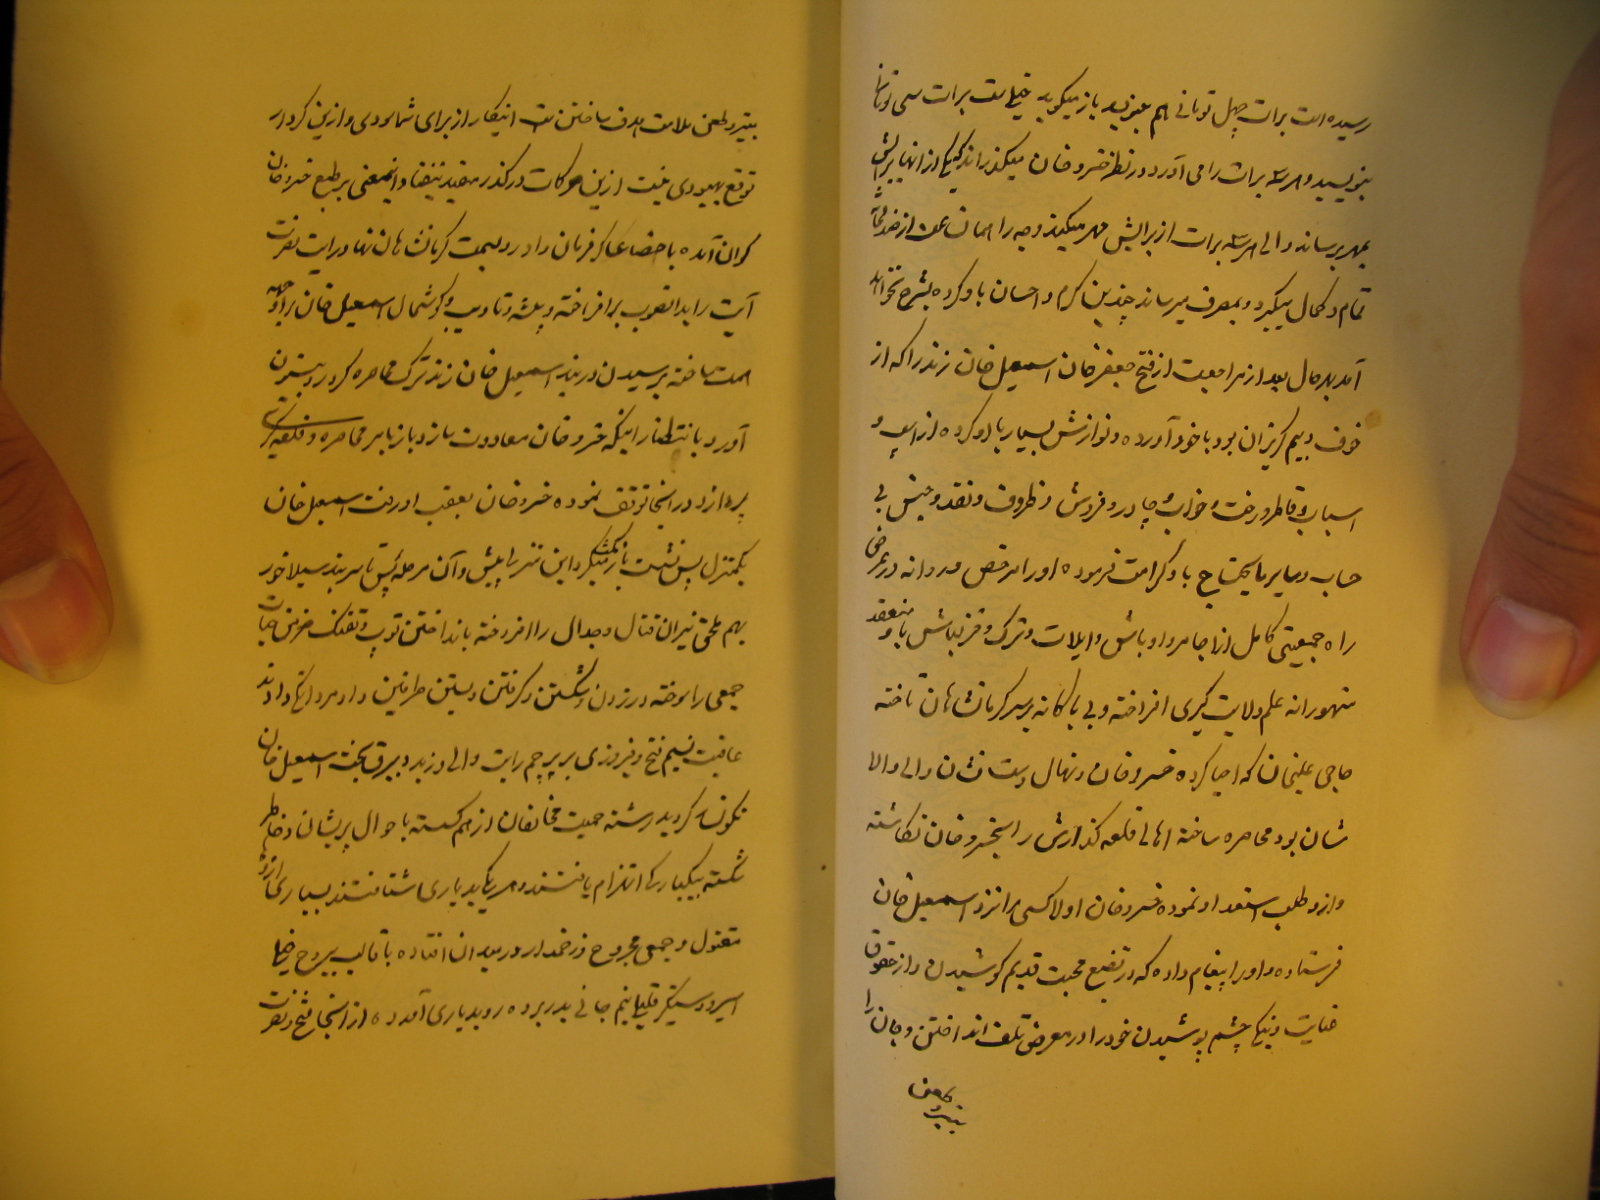 رسیده است برات چهل تومانی هم بنویسید باز میگوید خیلی است برات سی تومانی
بنویسید و هر سه برات را می آورد در نظر خسرو خان میگذراند که یکی از آنها برایش
بمهر برساند والی هر سه برات از برایش مهر میکند وجه را همان ساعت از
تمام و کمال میگیرد و بمصرف میرساند چندین کرم و احسان با او کرده بشرح نخواهد
آمد بهر حال بعد از مراجعت از فتح جعفر خان اسمعیل خان زند را که از
خوف و بیم گریزان بود با خود آورده و نوازش بسیار با او کرده از اسب و
اسباب و قاطر و رخت و خواب و چادر و فروش و ظروف و نقد و جنس بی
حساب و سایر مایحتاج باو کرامت فرموده او را مرخص و روانه در عرض
راه جمعیتی کامل از اجامر و اوباش و ایلات و ترک و قزلباش با او منعقد
متهورانه علم ولایت گیری افراخته و بی باکانه بر سر کرمانشاهان تاخته
حاجی علیخان که احیا کرده خسرو خان و نهال دست نشان والی والا
شان بود محاصره ساخته اهالی قلعه گذارش را بخسرو خان نگاشته
و از و طلب استعداد نموده خسرو خان اولا کسی را نزد اسمعیل خان
فرستاده و او را پیغام داده که در تضیع محبت قدیم کوشیدن و از حقوق
عنایت و نیکی چشم پوشیدن خود را در معرض تلف انداختن و جان را
بتیر و طعن
بتیر و طعن ملامت هدف ساختن است اینکار از برای شما سودی و ازین کردار
توقع بهبودی نیست ازین حرکات درگذر مفید نیفتاد و اینمعنی بر طبع خسرو خان
گران آمده باحضار عساکر فرمان داد و رو بسمت کرمانشاهان نهاد و رایت نصرت
آیت را بدانصوب برافراخته و تادیب و گوشمال اسمعیل خان را وجهه
همت ساخته برسیدن در بند اسمعیل خان زند ترک محاصره کرد رو به بیرون
آورد بانتظار اینکه خسرو خان معاودت سازد باز بامر محاصره و قلعه گیری
پردازد در آنجا توقف نموده خسرو خان بعقب او رفت اسمعیل خان
یکمنزل پس نشست باز این منزلی پیش و آن مرحله پس تا سر بند سیلاخور
بهم ملحق نیران قتال و جدال را افروخته بانداختن توپ و تفنگ خرمن حیات
جمعی را سوخته در زدن و کشتن و گرفتن و بستن طرفین داد مردانگی دادند
عاقبت نسیم فتح و فیروزی بر پرچم رایت والی وزید و بیرق بخت اسمعیل خان
نگونسار گردید رشته جمعیت مخالفان از هم گسسته با حال پریشان و خاطر
شکسته بیکبارگی انهزام یافتند و هر یک بدیاری شتافتند بسیاری از او
مقتول و جمعی مجروح و زخمدار در میدان افتاده با قالب بیروح خیلی
اسیر و دستگیر قلیلی نیم جانی بدر برده رو بدیاری آمده از آنجا فتح و نصرت